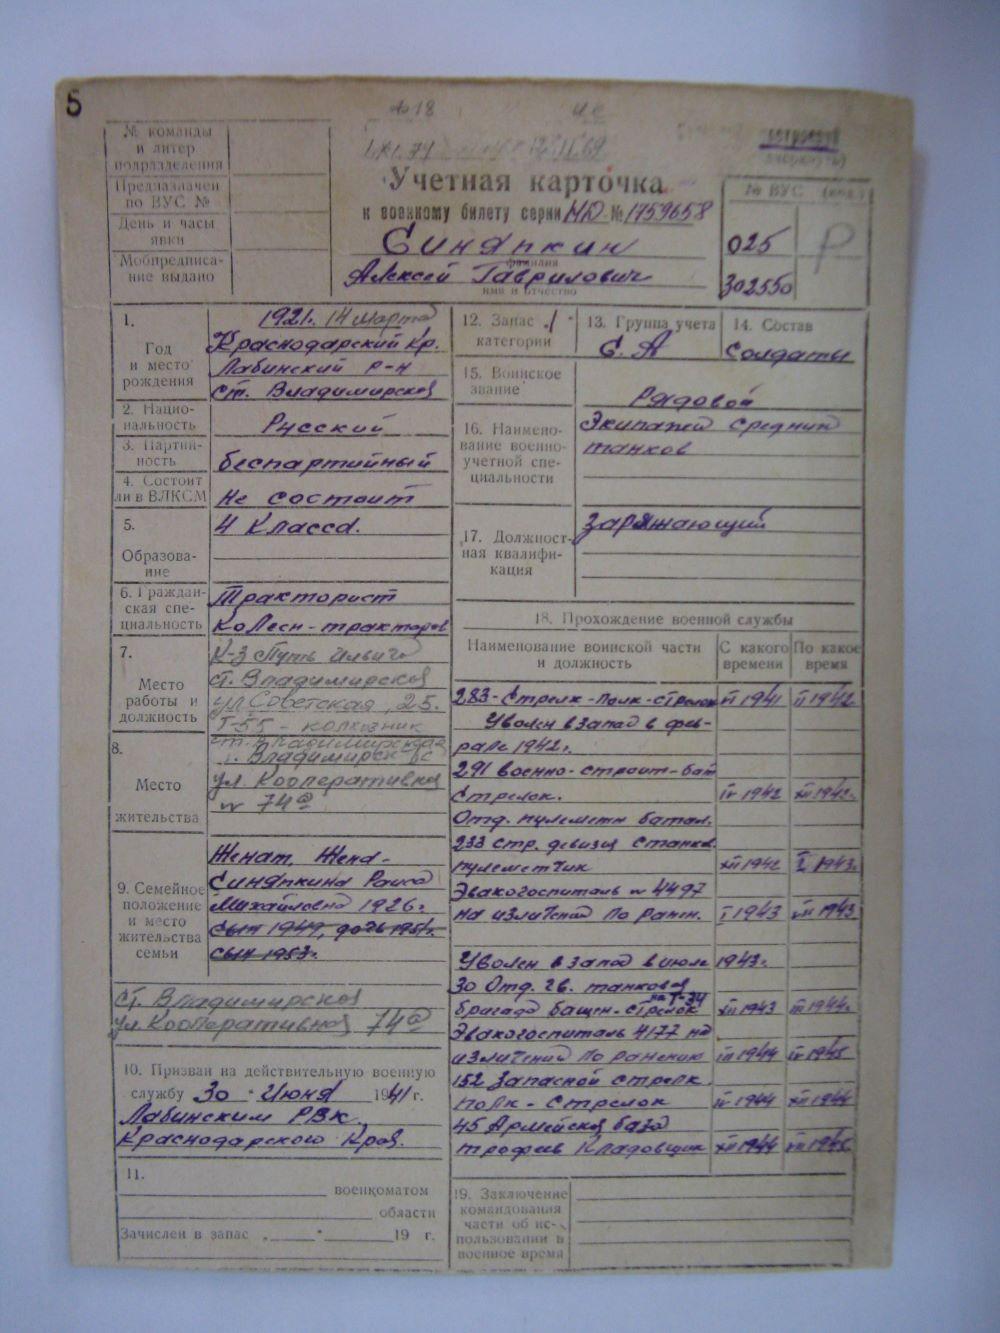 5
№ 18
№ команды
и литер
подразделения
Предназначен
по ВУС №
День и часы
явки
Мобпредписа-
ние выдано
Учетная карточка
к военному билету серии НЮ № 1759658
Синяпкин
фамилия
Алексей Гаврилович
имя и отчество
№ ВУС
025 Р
302550
1.
Год
и место
рождения
1921г. 14 марта
Краснодарский Кр.
Лабинский р-н
ст. Владимирская
2. Нацио-
нальность
Русский
3. Партий-
ность
беспартийный
4. Состоит
ли в ВЛКСМ
Не состоит
5.
Образова-
ние
4 класса.
6. Граждан-
ская спе-
циальность
Тракторист
Колесн-тракторов
7.
Место
работы и
должность
К-з Путь Ильича
ст. Владимирская
ул. Советская, 25.
колхозник
8.
Место
жительства
ст. Владимирская
ул. Кооперативная
№ 74а
9. Семейное
положение
и место
жительства
семьи
Женат, Жена-
Синяпкина Раиса
Михайловна 1926г.
сын 1949, дочь 1951г.
сын 1953г.
ст. Владимирская
ул. Кооперативная 74а
10. Призван на действительную военную
службу 30 " Июня 1941 г.
Лабинским РВК
Краснодарского Края.
11.
военкоматом
области
Зачислен в запас " " 19 г.
12. Запас 1
категории
13. Группа учета
С. А
14. Состав
Солдаты
15. Воинское
звание
Рядовой
16. Наимено-
вание военно-
учетной спе-
циальности
Экипажей средних
танков
17. Должност-
ная квалифи-
кация
Заряжающий
18. Прохождение военной службы
Наименование воинской части
и должность
С какого
времени
По какое
время
283-Стрелк-полк-стрелок VI 1941 II 1942
Уволен в запас в фев-
рале 1942г.
291 военно-строит-бат
Стрелок. IV 1942 XII 1942г.
Отд. пулеметн батал.
233 стр. дивизия Станков.
пулеметчик XII 1942 I 1943г.
Эвакогоспиталь № 4497
на излечений по ранен. I 1943 VII 1943
Уволен в запас в июле 1943г.
30 Отд. гв. танковая
на Т-34
бригада башен-стрелок XII 1943 III 1944г.
Эвакогоспиталь 4177 на
излечений по ранению III 1944 IV 1945
152 Запасной стрелк.
полк - Стрелок IV 1944 XII 1944
45 Армейская база
трофеев Кладовщик XII 1944 VII 1945
19. Заключение
командования
части об ис-
пользовании в
военное время